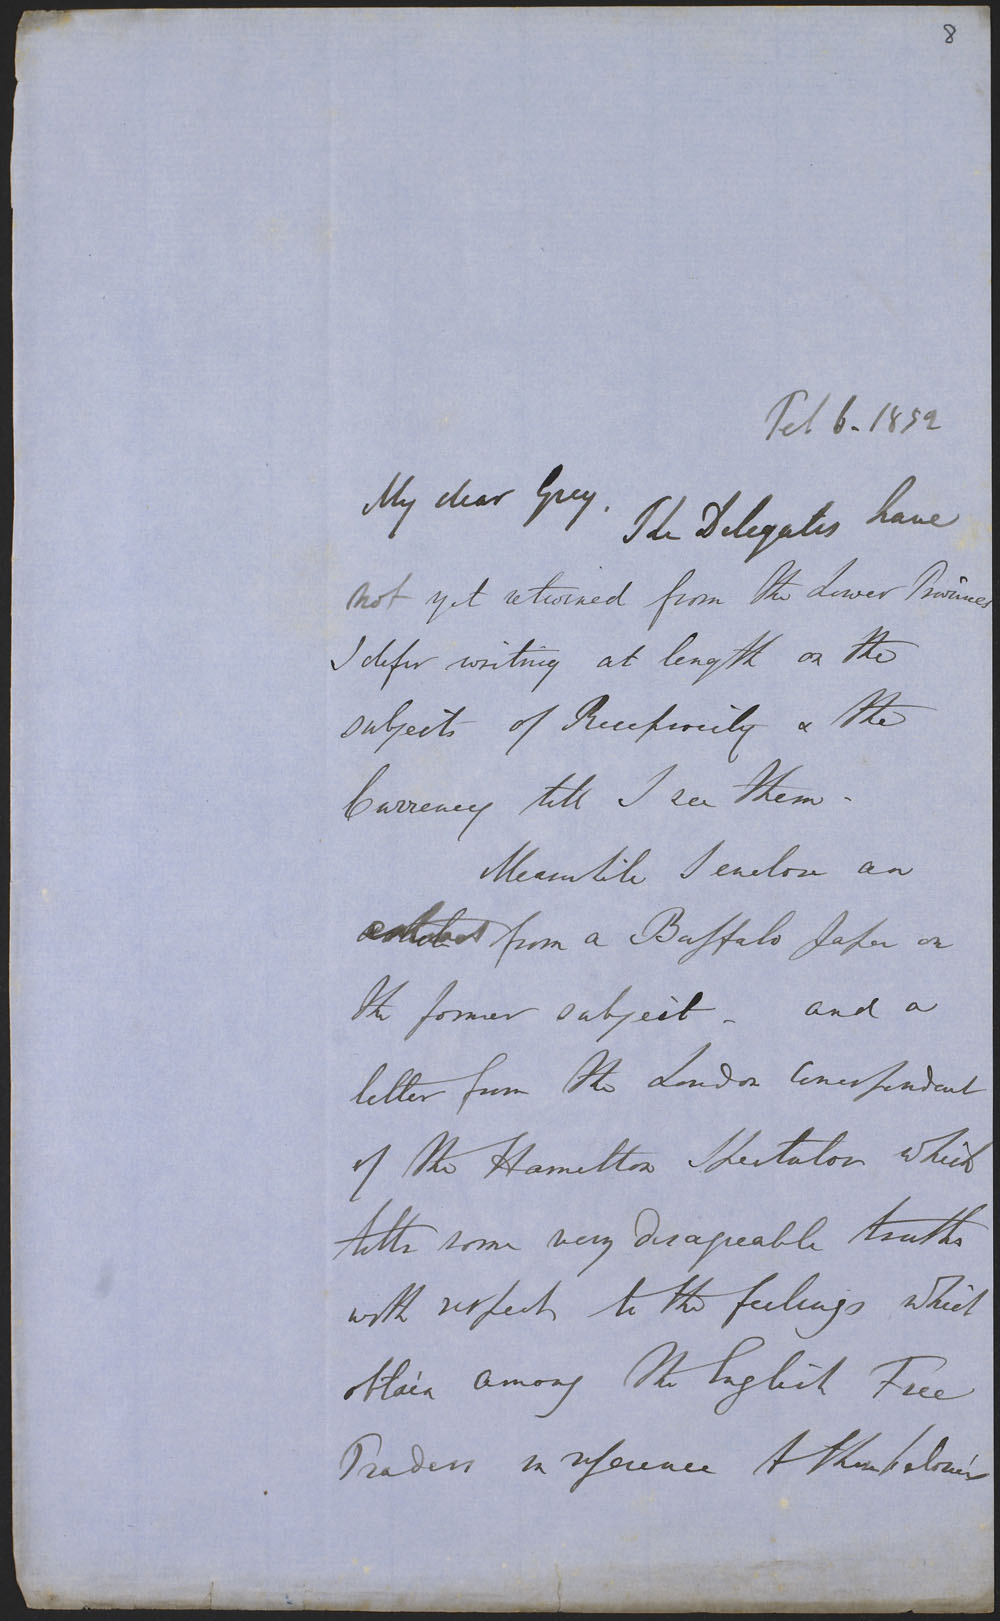 8
Feb 6. 1852
My dear Grey. The Delegates have
not yet returned from the Lower Provinces
I defer writing at length on the
subjects of Reciprocity & the
Currency till I see them -
Meanwhile I enclose an
from a Buffalo paper on
the former subject - and a
letter from the London correspondent
of the Hamilton Spectator which
tells some very disagreable truths
with respect to the feelings which
obtain among the English Free
Traders in reference to these colonies